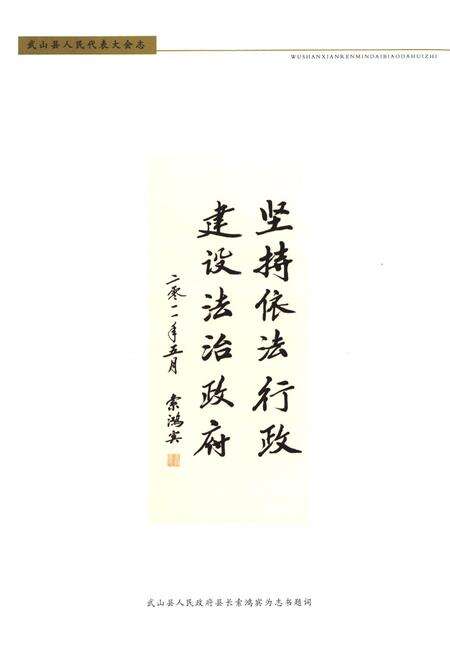 武山县人民代表大会志
WUSHANXIANRENMINDAIBIAODAHUIZHI
坚持依法行政
建设法治政府
二零一一年五月 索鸿宾
武山县人民政府县长索鸿宾为志书题词